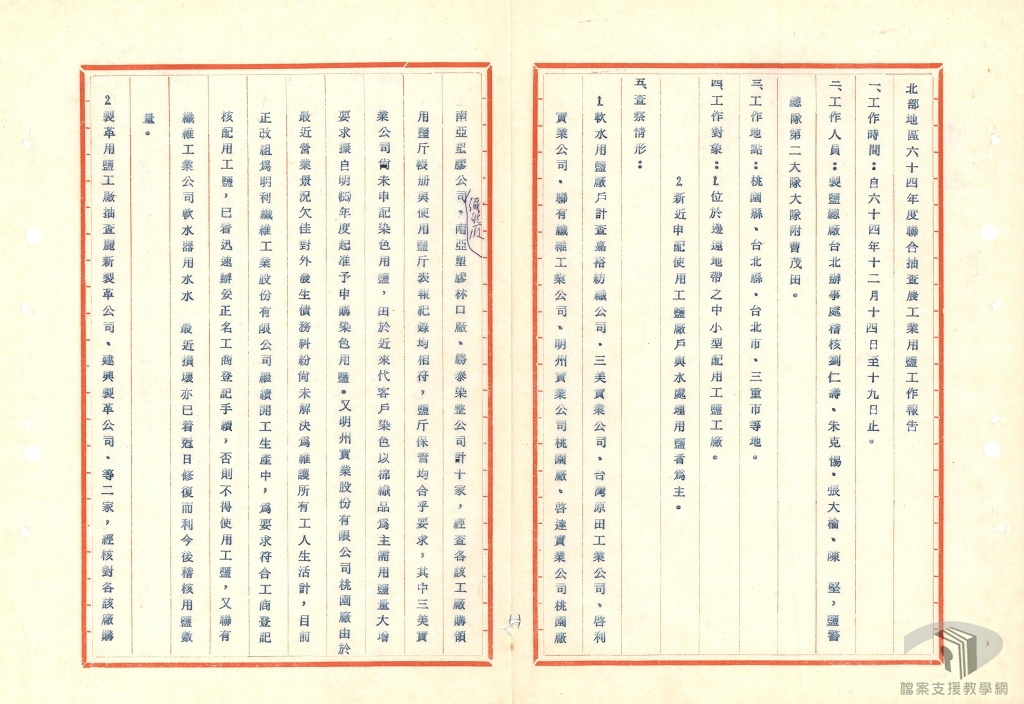 北部地區六十四年度聯合抽查農工業用鹽工作報告
一、工作時間：自六十四年十二月十四日至十九日止。
二、工作人員：製鹽總廠台北辦事處稽核劉仁壽、朱克惕、張大榆、陳　堅，鹽警
總隊第二大隊大隊附曹茂田。
三、工作地點：桃園縣、台北縣、台北市、三重市等地。
四、工作對象：1.位於邊遠地帶之中小型配用工鹽工廠。
2.新近申配使用工鹽廠戶與水處理用鹽者為主。
五、查察情形：
1.軟水用鹽廠戶計查嘉裕紡織公司、三美實業公司、台灣原田工業公司、啓利
實業公司、聯有纖維工業公司、明州實業公司桃園廠、啓達實業公司桃園廠
南亞塑膠公司、南亞塑膠林口廠、勝泰染整公司計十家，經查各該工廠購領
用鹽斤帳册與使用鹽斤表報紀錄均相符，鹽斤保管均合乎要求，其中三美實
業公司尚未申配染色用鹽，由於近來代客戶染色以棉織品為主需用鹽量大增
要求擬自明(65)年度起准予申購染色用鹽。又明州實業股份有限公司桃園廠由於
最近營業景況欠佳對外發生債務糾紛尚未解決為維護所有工人生活計，目前
正改組為明利纖維工業股份有限公司繼續開工生產中，為要求符合工商登記
核配用工鹽，已着迅速辦妥正名工商登記手續，否則不得使用工鹽，又聯有
纖維工業公司軟水器用水水　最近損壞亦已着尅日修復而利今後稽核用鹽數
量。
2.製革用鹽工廠抽查麗新製革公司、建興製革公司、等二家，經核對各該廠購
(一)
檔案支援教學網